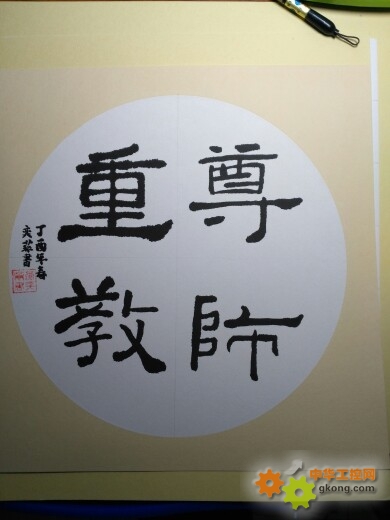 尊師
重教
丁酉年春
中华工控网
gkong.com